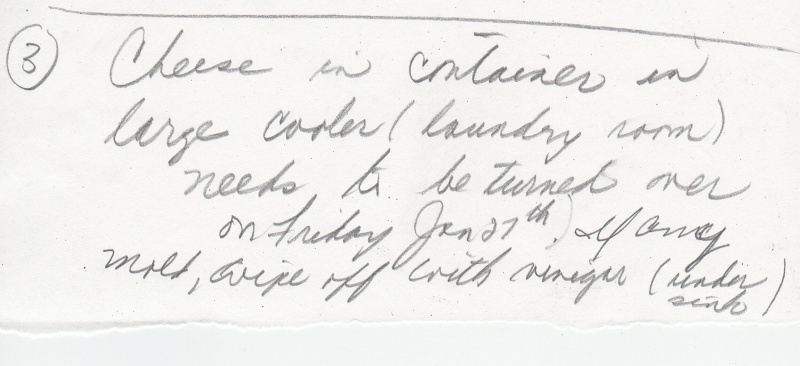 ③ Cheese in container in
large cooler (laundry room)
needs to be turned over
on Friday Jan 27th. If any
mold, wipe off with vinegar (under
sink)